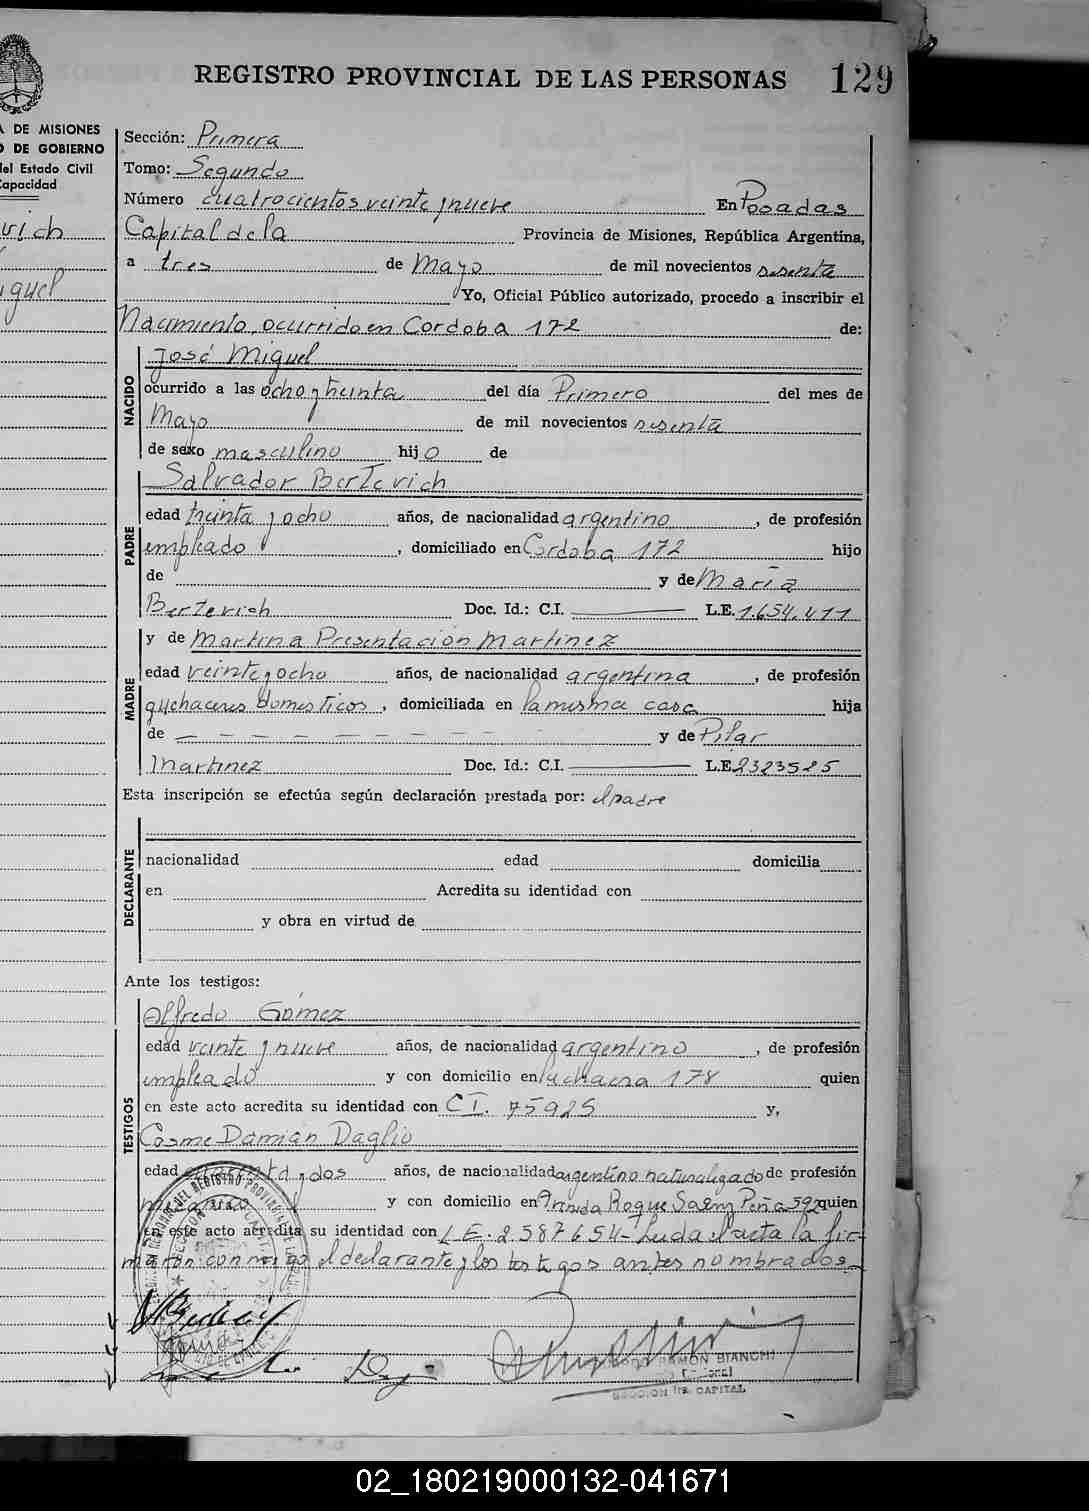 REGISTRO PROVINCIAL DE LAS PERSONAS 129
A DE MISIONES
O DE GOBIERNO
del Estado Civil
Capacidad
vich
iguel
Sección: Primera
Tomo: Segundo
Número cuatrocientos veinte y nueve En Posadas
Capital de la Provincia de Misiones, República Argentina,
a tres de Mayo de mil novecientos sesenta
Yo, Oficial Público autorizado, procedo a inscribir el
Nacimiento ocurrido en Cordoba 172 de:
NACIDO
José Miguel
ocurrido a las ocho y treinta del día Primero del mes de
Mayo de mil novecientos sesenta
de sexo masculino hijo de
PADRE
Salvador Bertevich
edad treinta y ocho años, de nacionalidad argentino, de profesión
empleado, domiciliado en Cordoba 172 hijo
de y de Maria
Bertevich Doc. Id.: C.I. L.E. 1.654.411
MADRE
y de Martina Presentación Martinez
edad veinte y ocho años, de nacionalidad argentina, de profesión
quehaceres domesticos, domiciliada en la misma casa hija
de y de Pilar
Martinez Doc. Id.: C.I. L.E. 2323525
Esta inscripción se efectúa según declaración prestada por: el padre
DECLARANTE
nacionalidad edad domicilia
en Acredita su identidad con
y obra en virtud de
Ante los testigos:
TESTIGOS
Alfredo Gómez
edad veinte y nueve años, de nacionalidad argentino, de profesión
empleado y con domicilio en Ayacucho 178 quien
en este acto acredita su identidad con C I. 75925 y,
Cosme Damián Daglio
edad cuarenta y dos años, de nacionalidad argentino naturalizado de profesión
mecanico y con domicilio en Avenida Roque Saenz Peña 592 quien
en este acto acredita su identidad con L E. 2.587654- Leida el acta la fir-
maron conmigo el declarante y los testigos antes nombrados.
RAMON BIANCHI
SECCION 1ra. CAPITAL
02_180219000132-041671